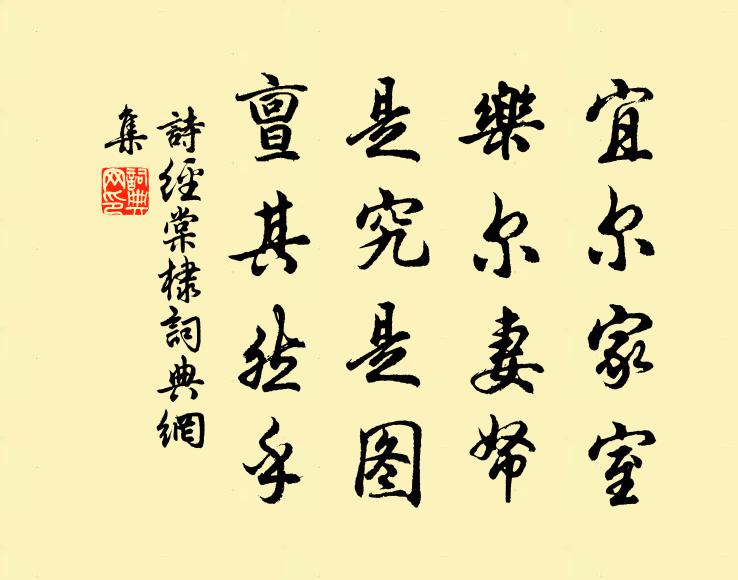 宜尔家室
樂尔妻帑
是究是图
亶其然乎
詩經棠棣詞典網
集
詞典网印